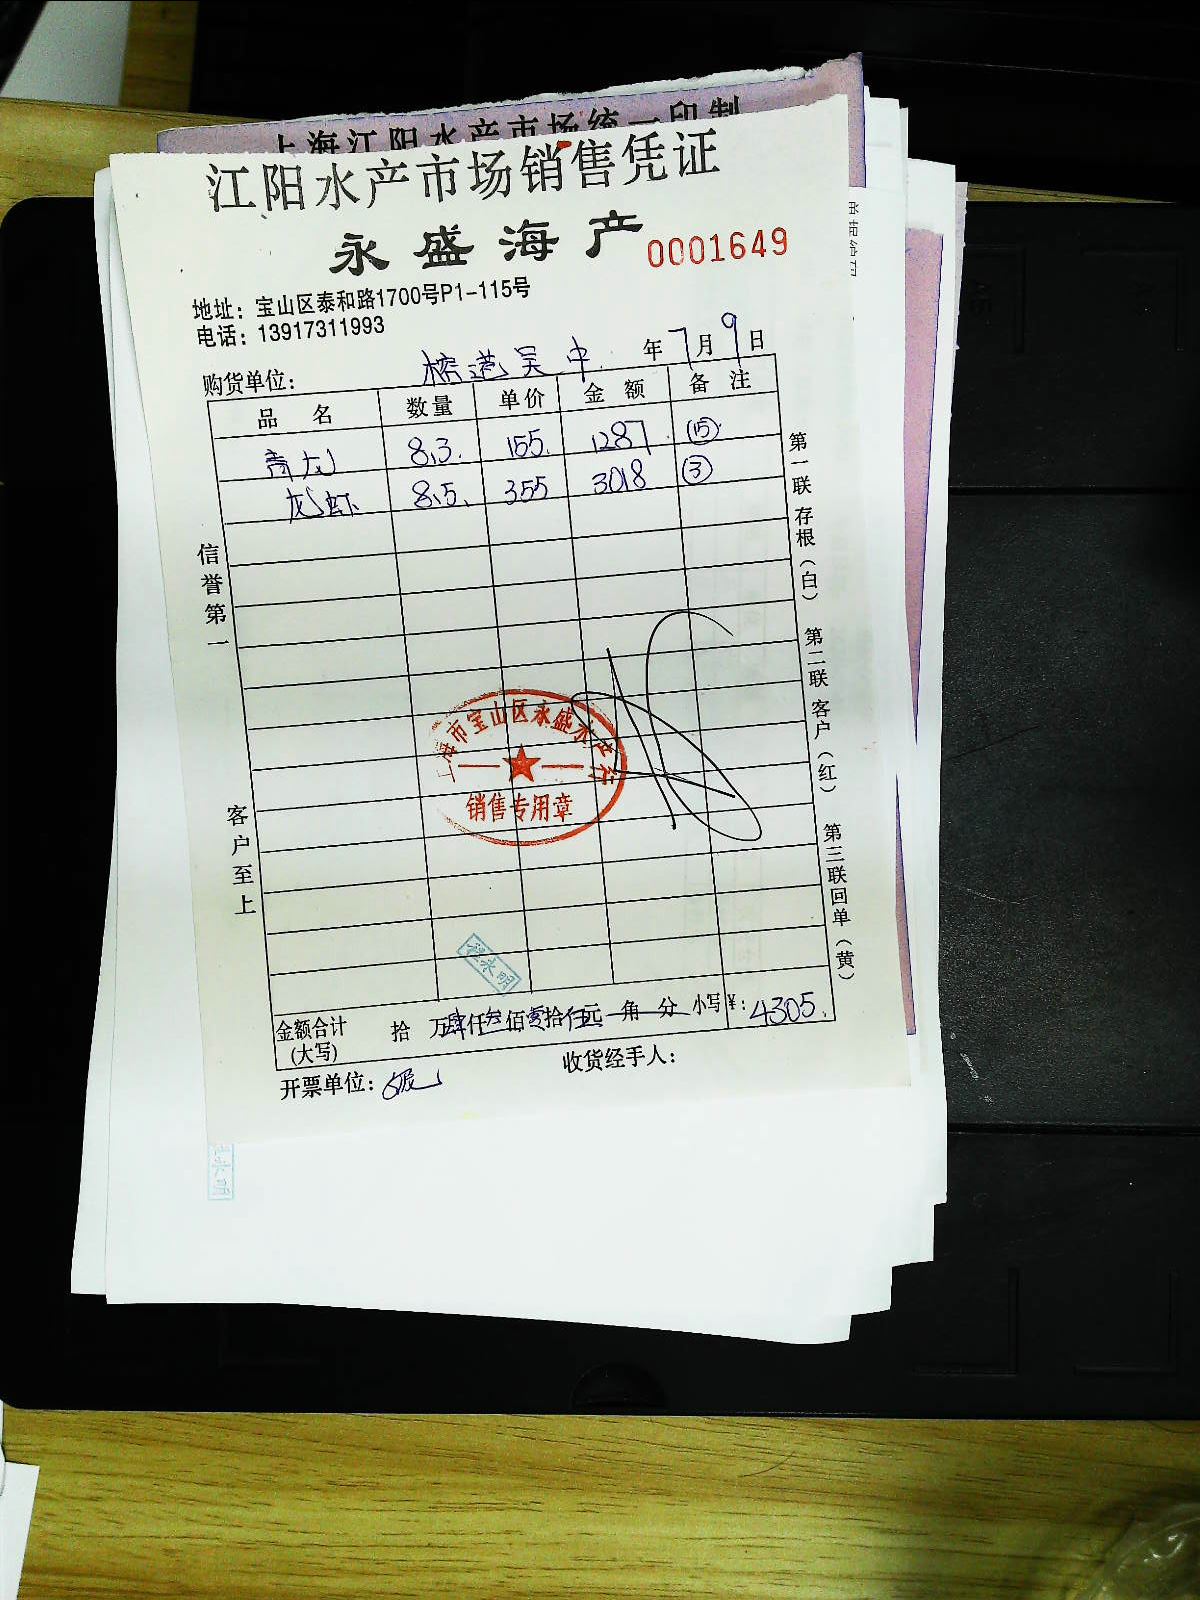 上海江阳水产市场统一印制
江阳水产市场销售凭证
永盛海产 0001649
地址：宝山区泰和路1700号P1-115号
电话：13917311993
购货单位： 榕港吴中 年7月9日
品 名 数量 单价 金 额 备 注
青龙 8.3. 155. 1287. ⑮
龙虾 8.5. 355 3018 ③
信誉第一
客户至上
第一联 存根（白） 第二联 客户（红） 第三联 回单（黄）
上海市宝山区永盛水产行
销售专用章
程永明
金额合计 拾 万肆仟叁佰零拾伍元 角 分 小写¥：4305.
(大写)
开票单位： 收货经手人：
永明